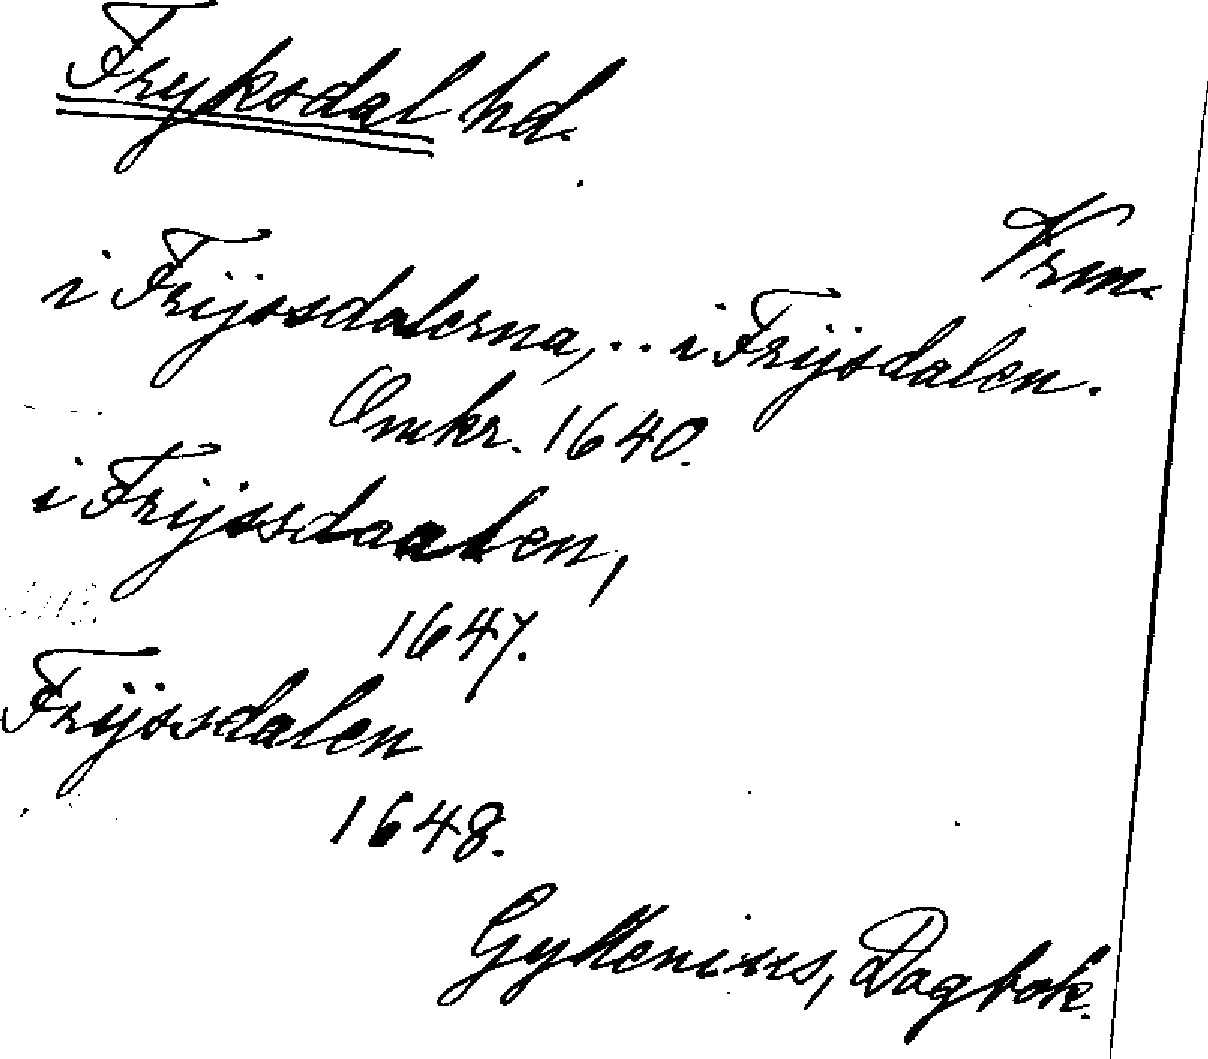 Fryksdal hd.
Vrm.
i Frijssdalerna, .. i Frijsdalen.
Omkr. 1640.
i Frijssdaalen,
1647.
Frijssdalen
1648.
Gyllenius, Dagbok.